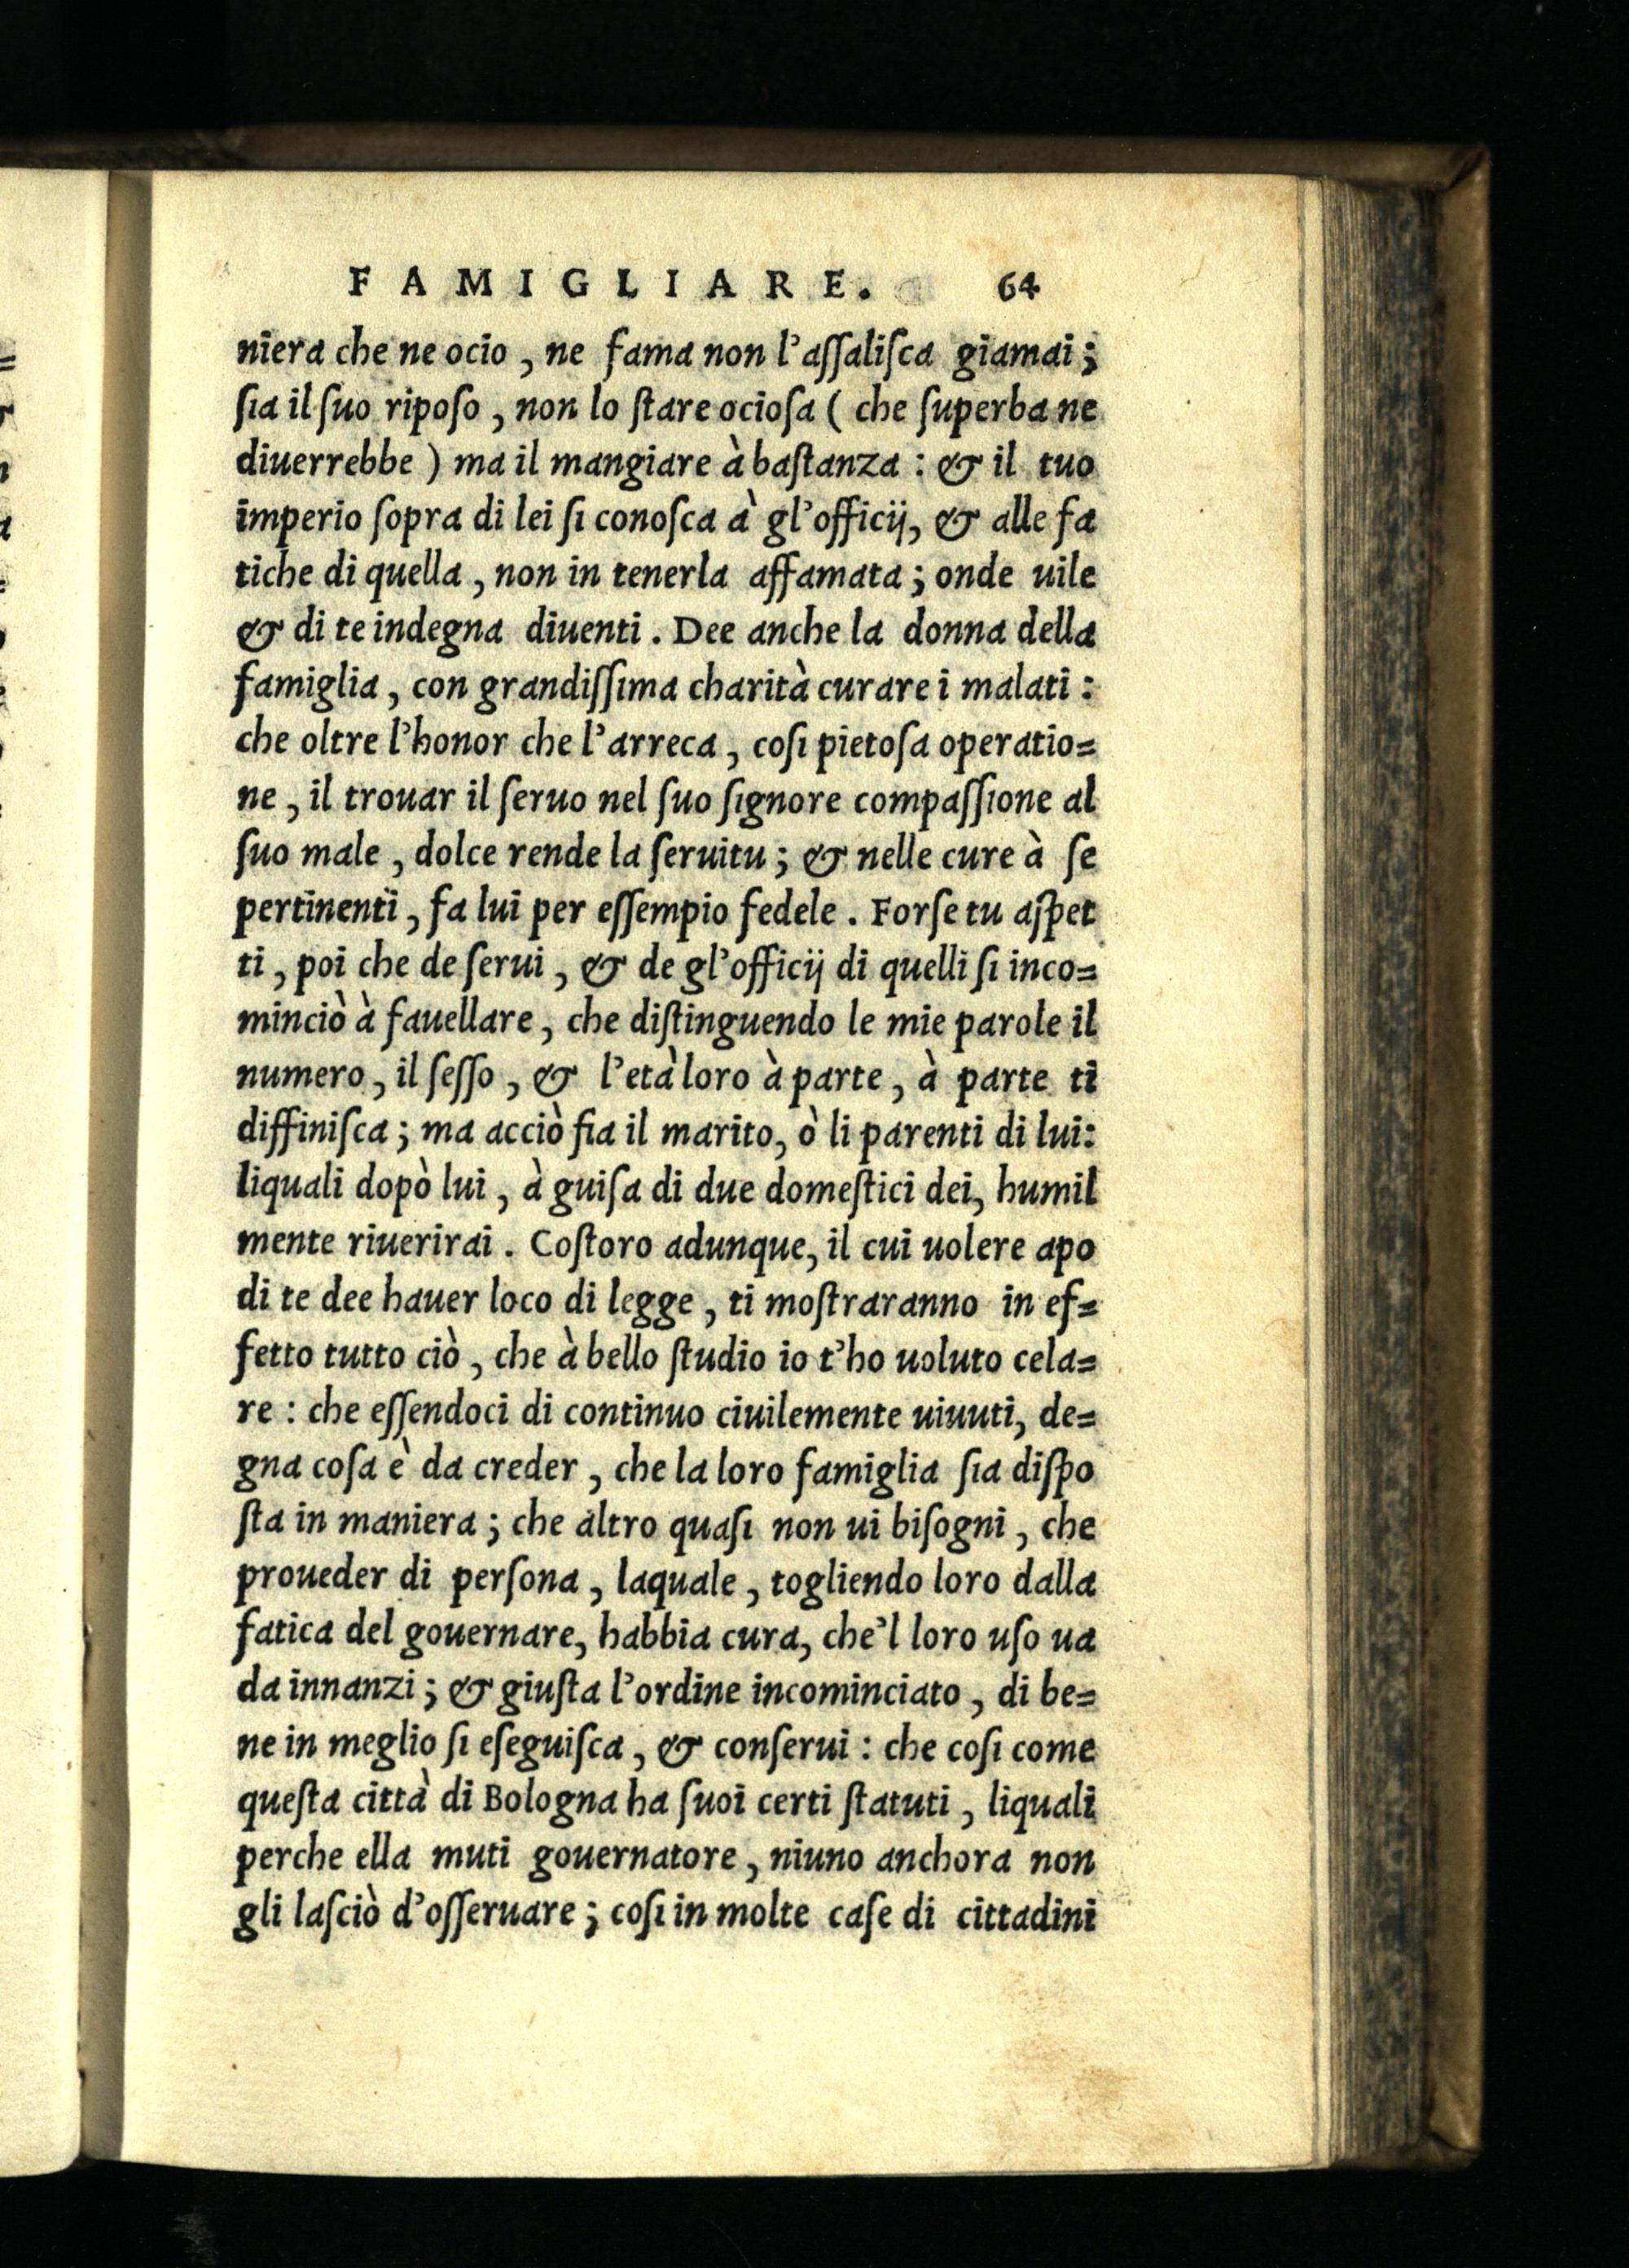 FAMIGLIARE. 64
niera che ne ocio, ne fama non l'aſſaliſca giamai;
ſia il ſuo ripoſo, non lo ſtare ocioſa (che ſuperba ne
diuerrebbe) ma il mangiare à baſtanza: & il tuo
imperio ſopra di lei ſi conoſca à gl'officij, & alle fa
tiche di quella, non in tenerla affamata; onde uile
& di te indegna diuenti. Dee anche la donna della
famiglia, con grandiſſima charità curare i malati:
che oltre l'honor che l'arreca, coſi pietoſa operatio=
ne, il trouar il ſeruo nel ſuo ſignore compaſſione al
ſuo male, dolce rende la ſeruitu; & nelle cure à ſe
pertinenti, fa lui per eſſempio fedele. Forſe tu aſpet
ti, poi che de ſerui, & de gl'officij di quelli ſi inco=
minciò à fauellare, che diſtinguendo le mie parole il
numero, il ſeſſo, & l'età loro à parte, à parte ti
diffiniſca; ma acciò fia il marito, ò li parenti di lui:
liquali dopò lui, à guiſa di due domeſtici dei, humil
mente riuerirai. Coſtoro adunque, il cui uolere apo
di te dee hauer loco di legge, ti moſtraranno in ef=
fetto tutto ciò, che à bello ſtudio io t'ho uoluto cela=
re: che eſſendoci di continuo ciuilemente uiuuti, de=
gna coſa è da creder, che la loro famiglia ſia diſpo
ſta in maniera; che altro quaſi non ui biſogni, che
proueder di perſona, laquale, togliendo loro dalla
fatica del gouernare, habbia cura, che'l loro uſo ua
da innanzi; & giuſta l'ordine incominciato, di be=
ne in meglio ſi eſeguiſca, & conſerui: che coſi come
queſta città di Bologna ha ſuoi certi ſtatuti, liquali
perche ella muti gouernatore, niuno anchora non
gli laſciò d'oſſeruare; coſi in molte caſe di cittadini